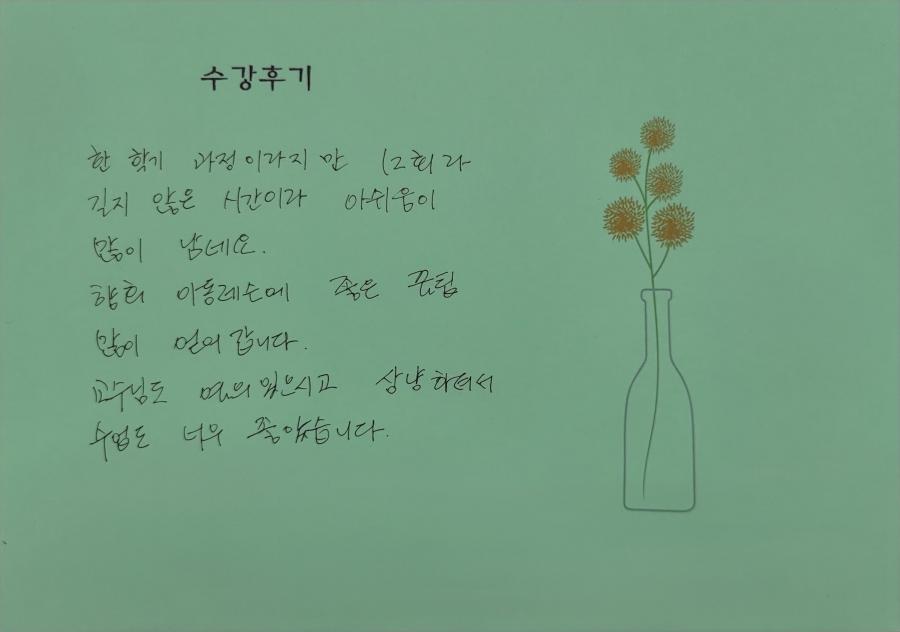 수강후기
한 학기 과정이라지만 12회라
길지 않은 시간이라 아쉬움이
많이 남네요.
향후 아동레슨에 좋은 꿀팁
많이 얻어갑니다.
교수님도 예의있으시고 상냥하셔서
수업도 너무 좋았습니다.